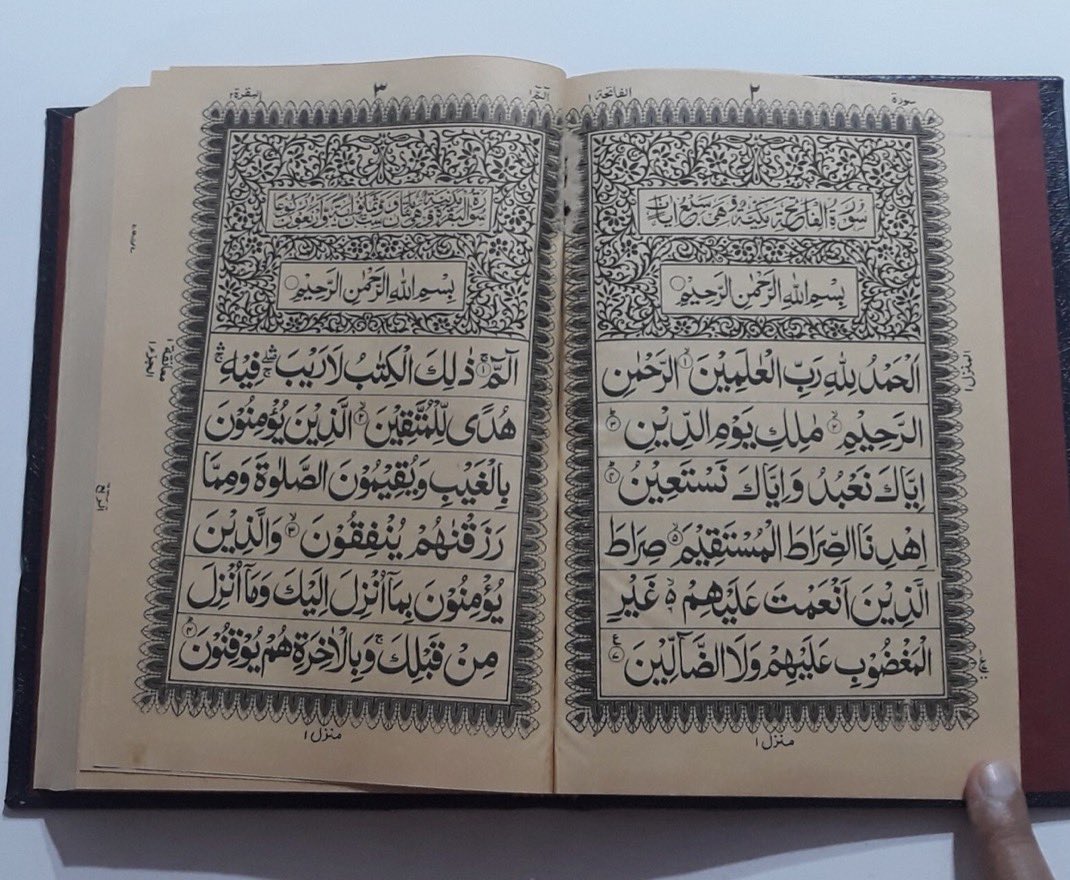 سورة ٢ الفاتحة ١
سُوْرَةُ الْفَاتِحَةِ مَكِّيَّةٌ وَّهِيَ سَبْعُ اٰيَاتٍ
بِسْمِ اللّٰهِ الرَّحْمٰنِ الرَّحِيْمِ
اَلْحَمْدُ لِلّٰهِ رَبِّ الْعٰلَمِيْنَ ۙ‏﴿۱﴾ الرَّحْمٰنِ
الرَّحِيْمِ ۙ‏﴿۲﴾ مٰلِكِ يَوْمِ الدِّيْنِ ؕ‏﴿۳﴾
اِيَّاكَ نَعْبُدُ وَاِيَّاكَ نَسْتَعِيْنُ ؕ‏﴿۴﴾
اِهْدِنَا الصِّرَاطَ الْمُسْتَقِيْمَ ۙ‏﴿۵﴾ صِرَاطَ
الَّذِيْنَ اَنْعَمْتَ عَلَيْهِمْ ۙ۬ غَيْرِ
الْمَغْضُوْبِ عَلَيْهِمْ وَلَا الضَّآلِّيْنَ ﴿۷﴾
منزل ١
البقرة ٢
٣
الٓمّٓ ١
بِسْمِ اللّٰهِ الرَّحْمٰنِ الرَّحِيْمِ
الٓمّٓ ۚ‏﴿۱﴾ ذٰلِكَ الْكِتٰبُ لَا رَيْبَ ۖۛۚ فِيْهِ ۛۚ
هُدًى لِّلْمُتَّقِيْنَ ۙ‏﴿۲﴾ الَّذِيْنَ يُؤْمِنُوْنَ
بِالْغَيْبِ وَيُقِيْمُوْنَ الصَّلٰوةَ وَمِمَّا
رَزَقْنٰهُمْ يُنْفِقُوْنَ ۙ‏﴿۳﴾ وَالَّذِيْنَ
يُؤْمِنُوْنَ بِمَاۤ اُنْزِلَ اِلَيْكَ وَمَاۤ اُنْزِلَ
مِنْ قَبْلِكَ ۚ وَبِالْاٰخِرَةِ هُمْ يُوْقِنُوْنَ ؕ‏﴿۴﴾
منزل ١